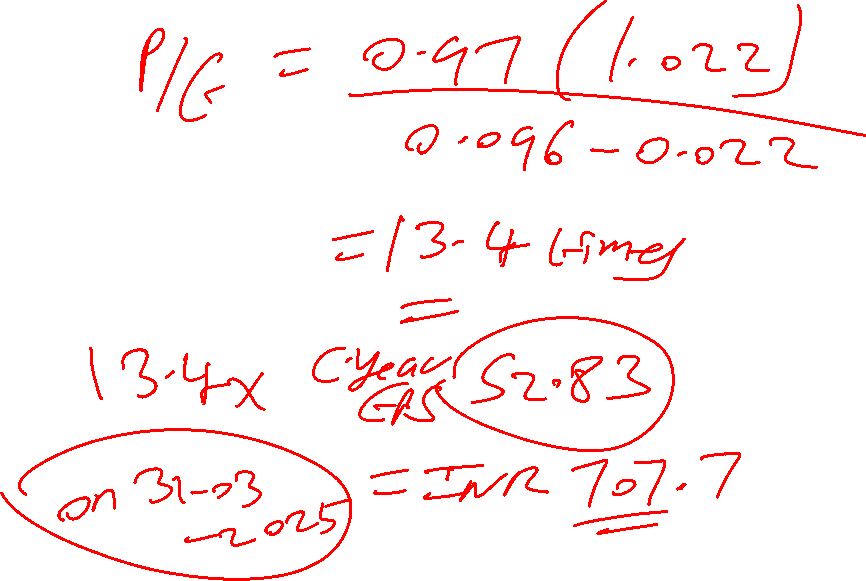 P/E = 0.97 (1.022)
0.096 - 0.022
= 13.4 times
=
13.4x C.year EPS 52.83
on 31-03-2025 = INR 707.7